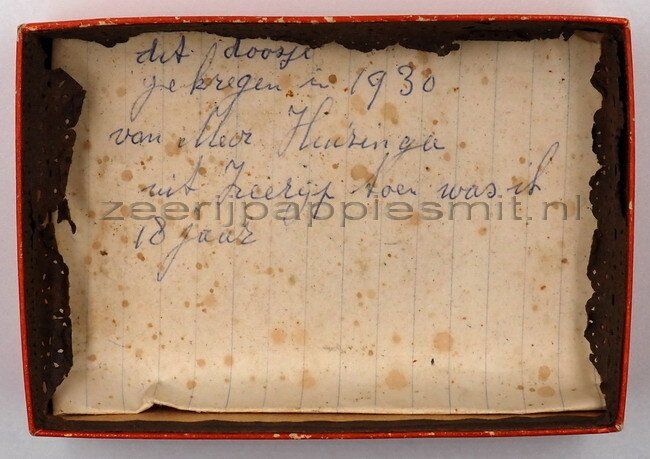 dit doosje
gekregen in 1930
van Meer Huizinga
uit Zeerijp toen was ik
zeerijpappiesmit.nl
18 jaar